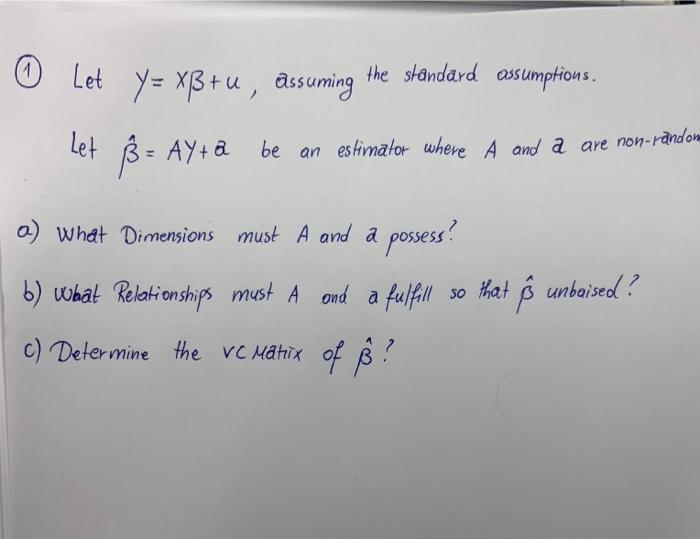 ① Let y = Xβ + u, assuming the standard assumptions.
Let β̂ = Ay + a be an estimator where A and a are non-random
a) What Dimensions must A and a possess?
b) What Relationships must A and a fulfill so that β̂ unbaised?
c) Determine the VC Matrix of β̂?